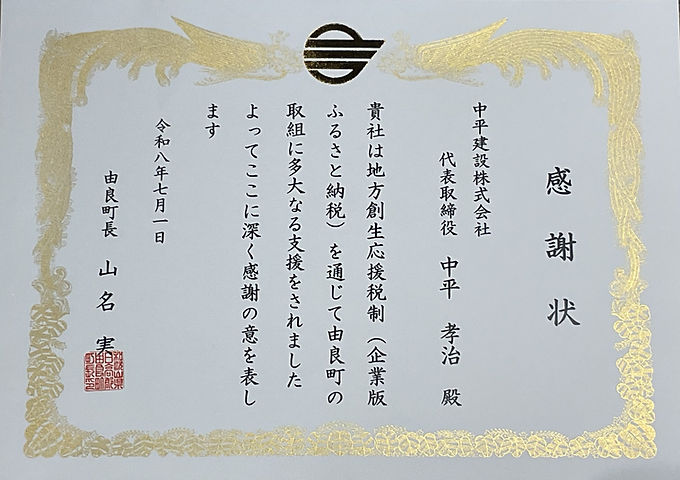 感謝状
中平建設株式会社
代表取締役 中平 孝治 殿
貴社は地方創生応援税制(企業版
ふるさと納税)を通じて由良町の
取組に多大なる支援をされました
よってここに深く感謝の意を表し
ます
令和八年七月一日
由良町長 山名 実